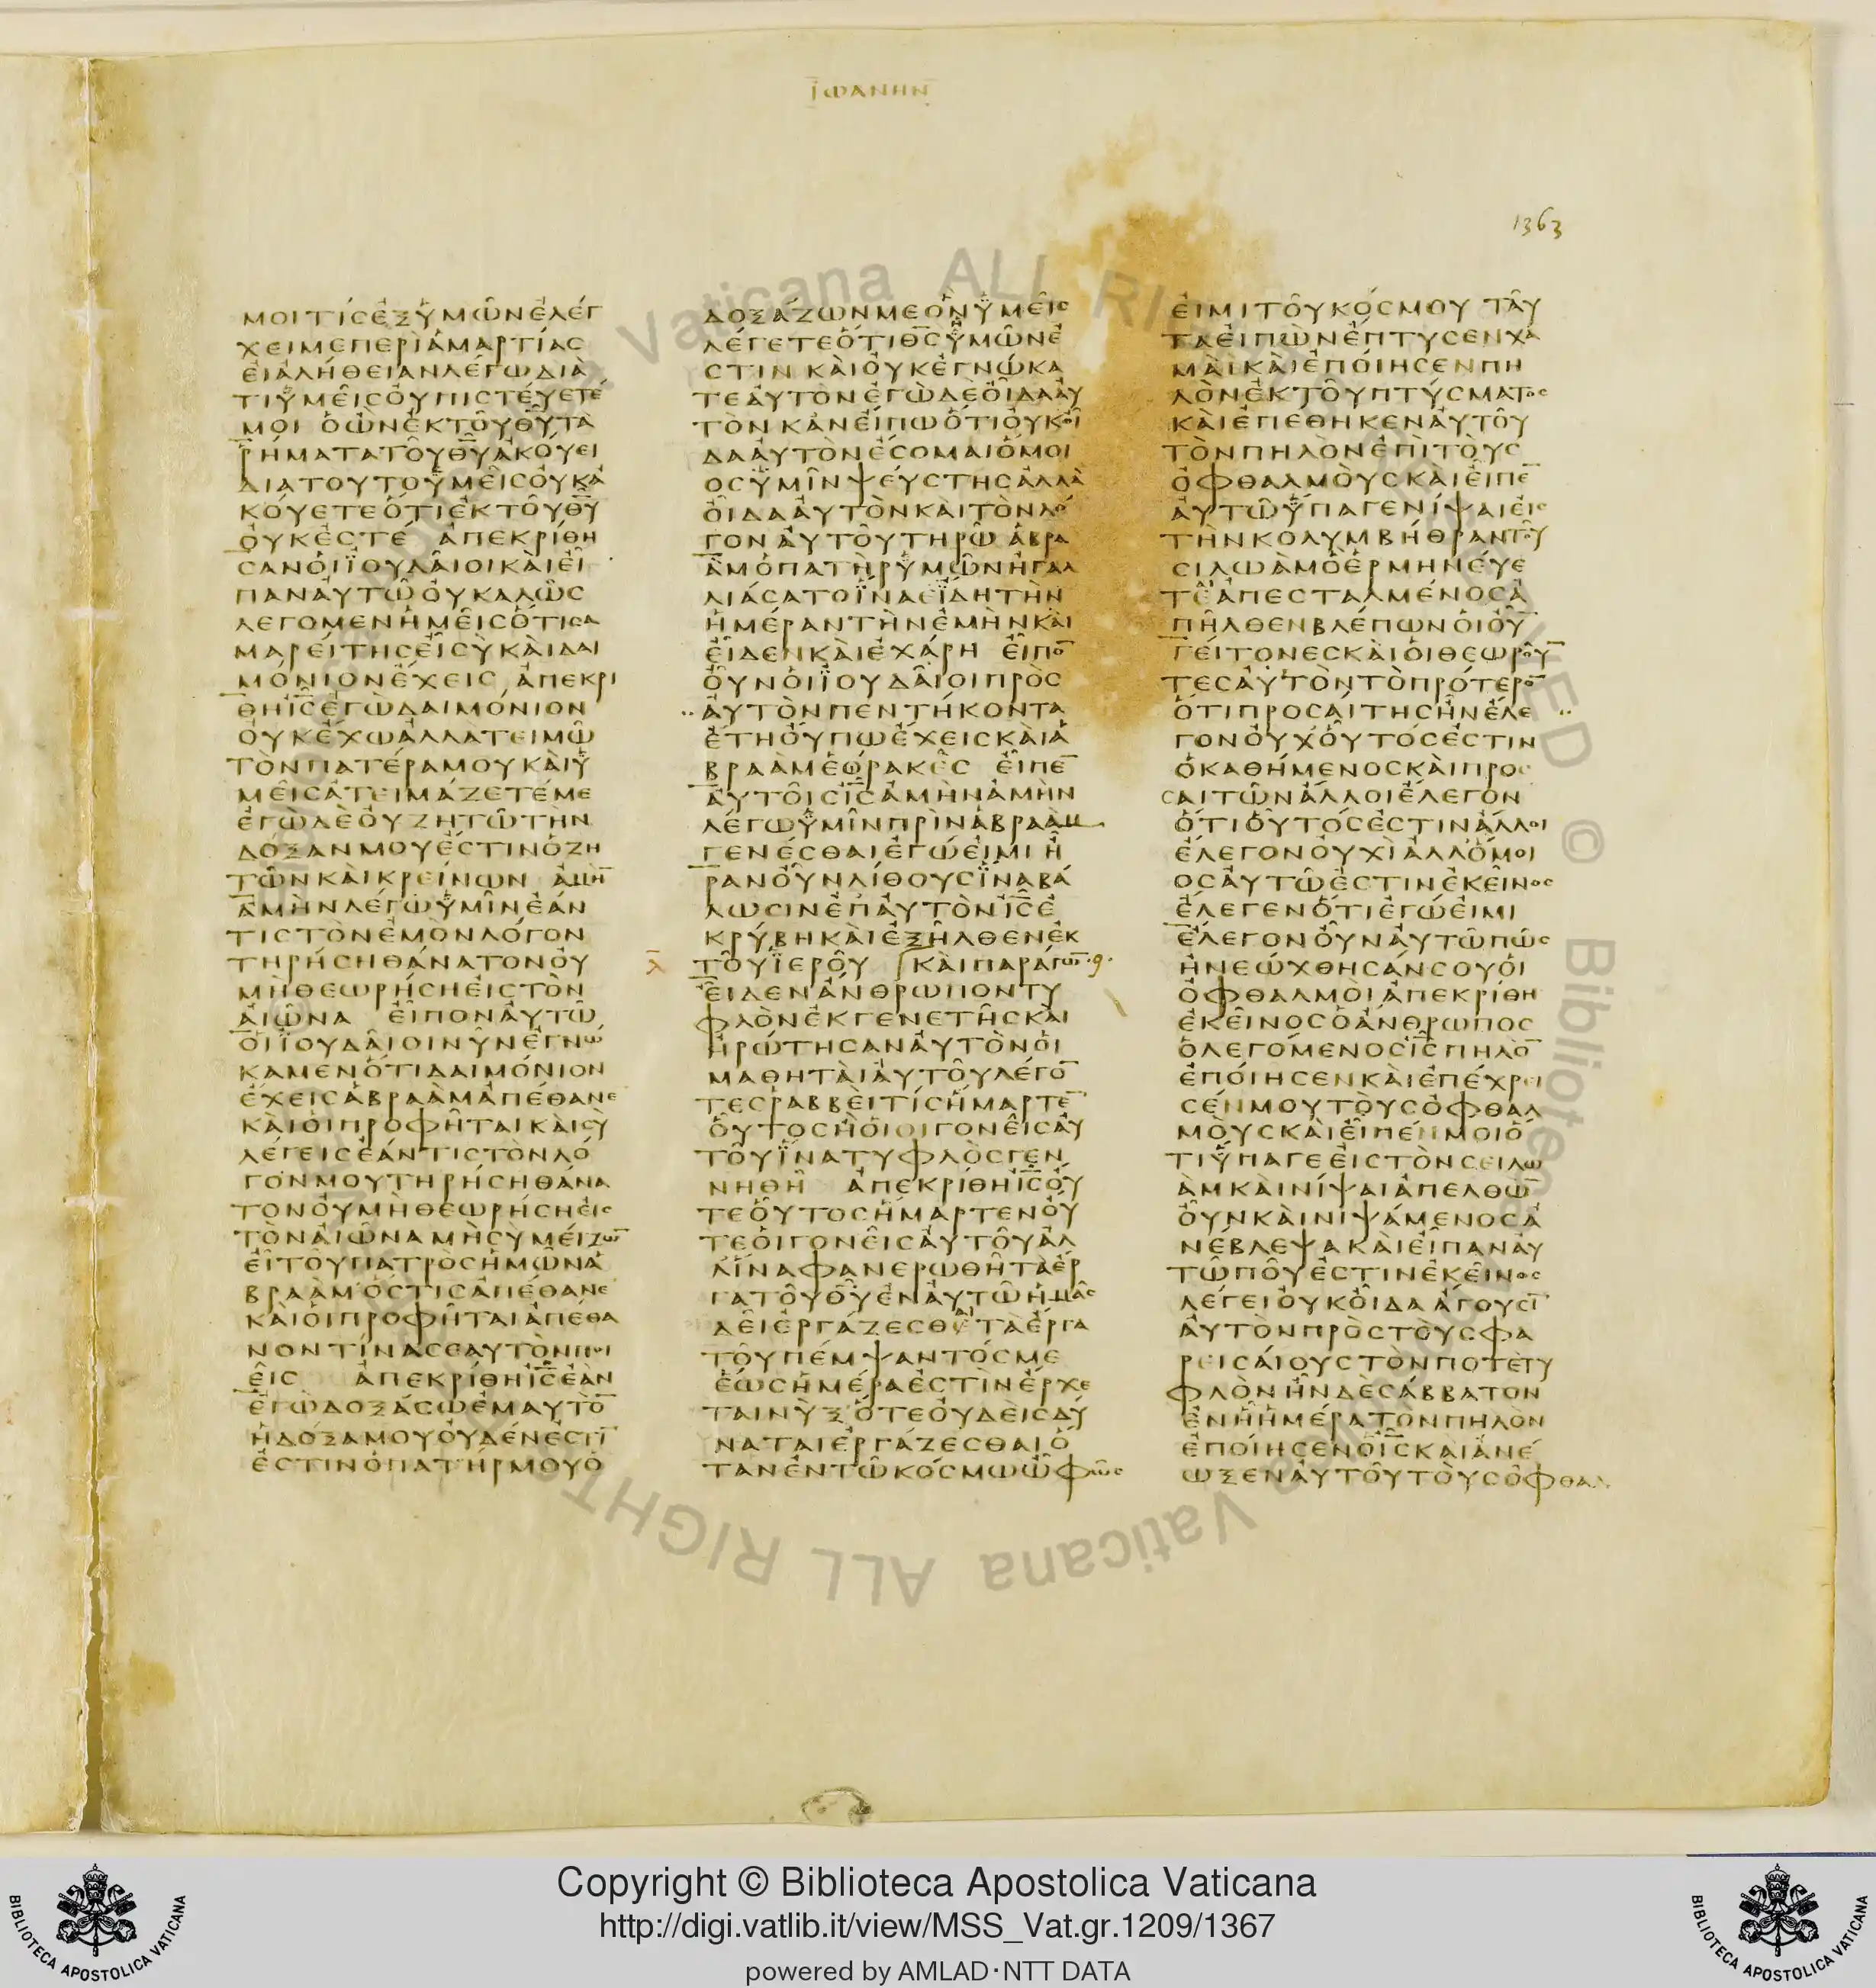 ΪΩΑΝΗΝ
1363
ΜΟΙΤΙϹΕΞΥΜΩΝΕΛΕΓ
ΧΕΙΜΕΠΕΡΙΑΜΑΡΤΙΑϹ
ΕΙΑΛΗΘΕΙΑΝΛΕΓΩΔΙΑ
ΤΙΥΜΕΙϹΟΥΠΙϹΤΕΥΕΤΕ
ΜΟΙ ΟΩΝΕΚΤΟΥΘΥΤΑ
ΡΗΜΑΤΑΤΟΥΘΥΑΚΟΥΕΙ
ΔΙΑΤΟΥΤΟΥΜΕΙϹΟΥΚΑ
ΚΟΥΕΤΕΟΤΙΕΚΤΟΥΘΥ
ΟΥΚΕϹΤΕ ΑΠΕΚΡΙΘΗ
ϹΑΝΟΙΪΟΥΔΑΙΟΙΚΑΙΕΙ
ΠΑΝΑΥΤΩΟΥΚΑΛΩϹ
ΛΕΓΟΜΕΝΗΜΕΙϹΟΤΙϹΑ
ΜΑΡΕΙΤΗϹΕΙϹΥΚΑΙΔΑΙ
ΜΟΝΙΟΝΕΧΕΙϹ ΑΠΕΚΡΙ
ΘΗΙϹΕΓΩΔΑΙΜΟΝΙΟΝ
ΟΥΚΕΧΩΑΛΛΑΤΕΙΜΩ
ΤΟΝΠΑΤΕΡΑΜΟΥΚΑΙΥ
ΜΕΙϹΑΤΕΙΜΑΖΕΤΕΜΕ
ΕΓΩΔΕΟΥΖΗΤΩΤΗΝ
ΔΟΞΑΝΜΟΥΕϹΤΙΝΟΖΗ
ΤΩΝΚΑΙΚΡΕΙΝΩΝ ΑΜΗ̅
ΑΜΗΝΛΕΓΩΥΜΙΝΕΑΝ
ΤΙϹΤΟΝΕΜΟΝΛΟΓΟΝ
ΤΗΡΗϹΗΘΑΝΑΤΟΝΟΥ
ΜΗΘΕΩΡΗϹΗΕΙϹΤΟΝ
ΑΙΩΝΑ ΕΙΠΟΝΑΥΤΩ
ΟΙΪΟΥΔΑΙΟΙΝΥΝΕΓΝΩ
ΚΑΜΕΝΟΤΙΔΑΙΜΟΝΙΟΝ
ΕΧΕΙϹΑΒΡΑΑΜΑΠΕΘΑΝΕ
ΚΑΙΟΙΠΡΟΦΗΤΑΙΚΑΙϹΥ
ΛΕΓΕΙϹΕΑΝΤΙϹΤΟΝΛΟ
ΓΟΝΜΟΥΤΗΡΗϹΗΘΑΝΑ
ΤΟΝΟΥΜΗΘΕΩΡΗϹΗΕΙϹ
ΤΟΝΑΙΩΝΑΜΗϹΥΜΕΙΖΩ̅
ΕΙΤΟΥΠΑΤΡΟϹΗΜΩΝΑ
ΒΡΑΑΜΟϹΤΙϹΑΠΕΘΑΝΕ
ΚΑΙΟΙΠΡΟΦΗΤΑΙΑΠΕΘΑ
ΝΟΝΤΙΝΑϹΕΑΥΤΟΝΠΟΙ
ΕΙϹ ΑΠΕΚΡΙΘΗΙϹΕΑΝ
ΕΓΩΔΟΞΑϹΩΕΜΑΥΤΟ̅
ΗΔΟΞΑΜΟΥΟΥΔΕΝΕϹΤΙ̅
ΕϹΤΙΝΟΠΑΤΗΡΜΟΥΟ
ΔΟΞΑΖΩΝΜΕΟΝΥΜΕΙϹ
ΛΕΓΕΤΕΟΤΙΘϹΥΜΩΝΕ
ϹΤΙΝ ΚΑΙΟΥΚΕΓΝΩΚΑ
ΤΕΑΥΤΟΝΕΓΩΔΕΟΙΔΑΑΥ
ΤΟΝΚΑΝΕΙΠΩΟΤΙΟΥΚΟΙ
ΔΑΑΥΤΟΝΕϹΟΜΑΙΟΜΟΙ
ΟϹΥΜΙΝΨΕΥϹΤΗϹΑΛΛΑ
ΟΙΔΑΑΥΤΟΝΚΑΙΤΟΝΛΟ
ΓΟΝΑΥΤΟΥΤΗΡΩ ΑΒΡΑ
ΑΜΟΠΑΤΗΡΥΜΩΝΗΓΑΛ
ΛΙΑϹΑΤΟΪΝΑΕΙΔΗΤΗΝ
ΗΜΕΡΑΝΤΗΝΕΜΗΝΚΑΙ
ΕΙΔΕΝΚΑΙΕΧΑΡΗ ΕΙΠΟ̅
ΟΥΝΟΙΪΟΥΔΑΙΟΙΠΡΟϹ
ΑΥΤΟΝΠΕΝΤΗΚΟΝΤΑ
ΕΤΗΟΥΠΩΕΧΕΙϹΚΑΙΑ
ΒΡΑΑΜΕΩΡΑΚΕϹ ΕΙΠΕ̅
ΑΥΤΟΙϹΙϹΑΜΗΝΑΜΗΝ
ΛΕΓΩΥΜΙΝΠΡΙΝΑΒΡΑΑΜ
ΓΕΝΕϹΘΑΙΕΓΩΕΙΜΙ Η
ΡΑΝΟΥΝΛΙΘΟΥϹΪΝΑΒΑ
ΛΩϹΙΝΕΠΑΥΤΟΝΙϹΕ
ΚΡΥΒΗΚΑΙΕΞΗΛΘΕΝΕΚ
ΤΟΥΪΕΡΟΥ ΚΑΙΠΑΡΑΓΩ̅
ΕΙΔΕΝΑΝΘΡΩΠΟΝΤΥ
ΦΛΟΝΕΚΓΕΝΕΤΗϹΚΑΙ
ΗΡΩΤΗϹΑΝΑΥΤΟΝΟΙ
ΜΑΘΗΤΑΙΑΥΤΟΥΛΕΓΟ̅
ΤΕϹΡΑΒΒΕΙΤΙϹΗΜΑΡΤΕ̅
ΟΥΤΟϹΗΟΙΟΙΓΟΝΕΙϹΑΥ
ΤΟΥΪΝΑΤΥΦΛΟϹΓΕΝ
ΝΗΘΗ ΑΠΕΚΡΙΘΗΙϹΟΥ
ΤΕΟΥΤΟϹΗΜΑΡΤΕΝΟΥ
ΤΕΟΙΓΟΝΕΙϹΑΥΤΟΥΑΛ
ΛΪΝΑΦΑΝΕΡΩΘΗΤΑΕΡ
ΓΑΤΟΥΘΥΕΝΑΥΤΩΗΜΑϹ
ΔΕΙΕΡΓΑΖΕϹΘΕΤΑΕΡΓΑ
ΤΟΥΠΕΜΨΑΝΤΟϹΜΕ
ΕΩϹΗΜΕΡΑΕϹΤΙΝΕΡΧΕ
ΤΑΙΝΥΞΟΤΕΟΥΔΕΙϹΔΥ
ΝΑΤΑΙΕΡΓΑΖΕϹΘΑΙΟ
ΤΑΝΕΝΤΩΚΟϹΜΩΩΦΩϹ
ΕΙΜΙΤΟΥΚΟϹΜΟΥ ΤΑΥ
ΤΑΕΙΠΩΝΕΠΤΥϹΕΝΧΑ
ΜΑΙΚΑΙΕΠΟΙΗϹΕΝΠΗ
ΛΟΝΕΚΤΟΥΠΤΥϹΜΑΤΟϹ
ΚΑΙΕΠΕΘΗΚΕΝΑΥΤΟΥ
ΤΟΝΠΗΛΟΝΕΠΙΤΟΥϹ
ΟΦΘΑΛΜΟΥϹΚΑΙΕΙΠΕ̅
ΑΥΤΩΥΠΑΓΕΝΙΨΑΙΕΙϹ
ΤΗΝΚΟΛΥΜΒΗΘΡΑΝΤΟΥ
ϹΙΛΩΑΜΟΕΡΜΗΝΕΥΕ
ΤΕΑΠΕϹΤΑΛΜΕΝΟϹΑ
ΠΗΛΘΕΝΒΛΕΠΩΝΟΙΟΥ̅
ΓΕΙΤΟΝΕϹΚΑΙΟΙΘΕΩΡΟΥ̅
ΤΕϹΑΥΤΟΝΤΟΠΡΟΤΕΡΟ̅
ΟΤΙΠΡΟϹΑΙΤΗϹΗΝΕΛΕ
ΓΟΝΟΥΧΟΥΤΟϹΕϹΤΙΝ
ΟΚΑΘΗΜΕΝΟϹΚΑΙΠΡΟϹ
ϹΑΙΤΩΝΑΛΛΟΙΕΛΕΓΟΝ
ΟΤΙΟΥΤΟϹΕϹΤΙΝΑΛΛΟΙ
ΕΛΕΓΟΝΟΥΧΙΑΛΛΟΜΟΙ
ΟϹΑΥΤΩΕϹΤΙΝΕΚΕΙΝΟϹ
ΕΛΕΓΕΝΟΤΙΕΓΩΕΙΜΙ
ΕΛΕΓΟΝΟΥΝΑΥΤΩΠΩϹ
ΗΝΕΩΧΘΗϹΑΝϹΟΥΟΙ
ΟΦΘΑΛΜΟΙΑΠΕΚΡΙΘΗ
ΕΚΕΙΝΟϹΟΑΝΘΡΩΠΟϹ
ΟΛΕΓΟΜΕΝΟϹΙϹΠΗΛΟ̅
ΕΠΟΙΗϹΕΝΚΑΙΕΠΕΧΡΕΙ
ϹΕΝΜΟΥΤΟΥϹΟΦΘΑΛ
ΜΟΥϹΚΑΙΕΙΠΕΝΜΟΙΟ
ΤΙΥΠΑΓΕΕΙϹΤΟΝϹΕΙΛΩ
ΑΜΚΑΙΝΙΨΑΙΑΠΕΛΘΩ̅
ΟΥΝΚΑΙΝΙΨΑΜΕΝΟϹΑ
ΝΕΒΛΕΨΑΚΑΙΕΙΠΑΝΑΥ
ΤΩΠΟΥΕϹΤΙΝΕΚΕΙΝΟϹ
ΛΕΓΕΙΟΥΚΟΙΔΑ ΑΓΟΥϹΙ̅
ΑΥΤΟΝΠΡΟϹΤΟΥϹΦΑ
ΡΕΙϹΑΙΟΥϹΤΟΝΠΟΤΕΤΥ
ΦΛΟΝΗΝΔΕϹΑΒΒΑΤΟΝ
ΕΝΗΗΜΕΡΑΤΟΝΠΗΛΟΝ
ΕΠΟΙΗϹΕΝΟΙϹΚΑΙΑΝΕ
ΩΞΕΝΑΥΤΟΥΤΟΥϹΟΦΘΑΛ
Copyright © Biblioteca Apostolica Vaticana
http://digi.vatlib.it/view/MSS_Vat.gr.1209/1367
powered by AMLAD·NTT DATA
BIBLIOTECA APOSTOLICA VATICANA
BIBLIOTECA APOSTOLICA VATICANA